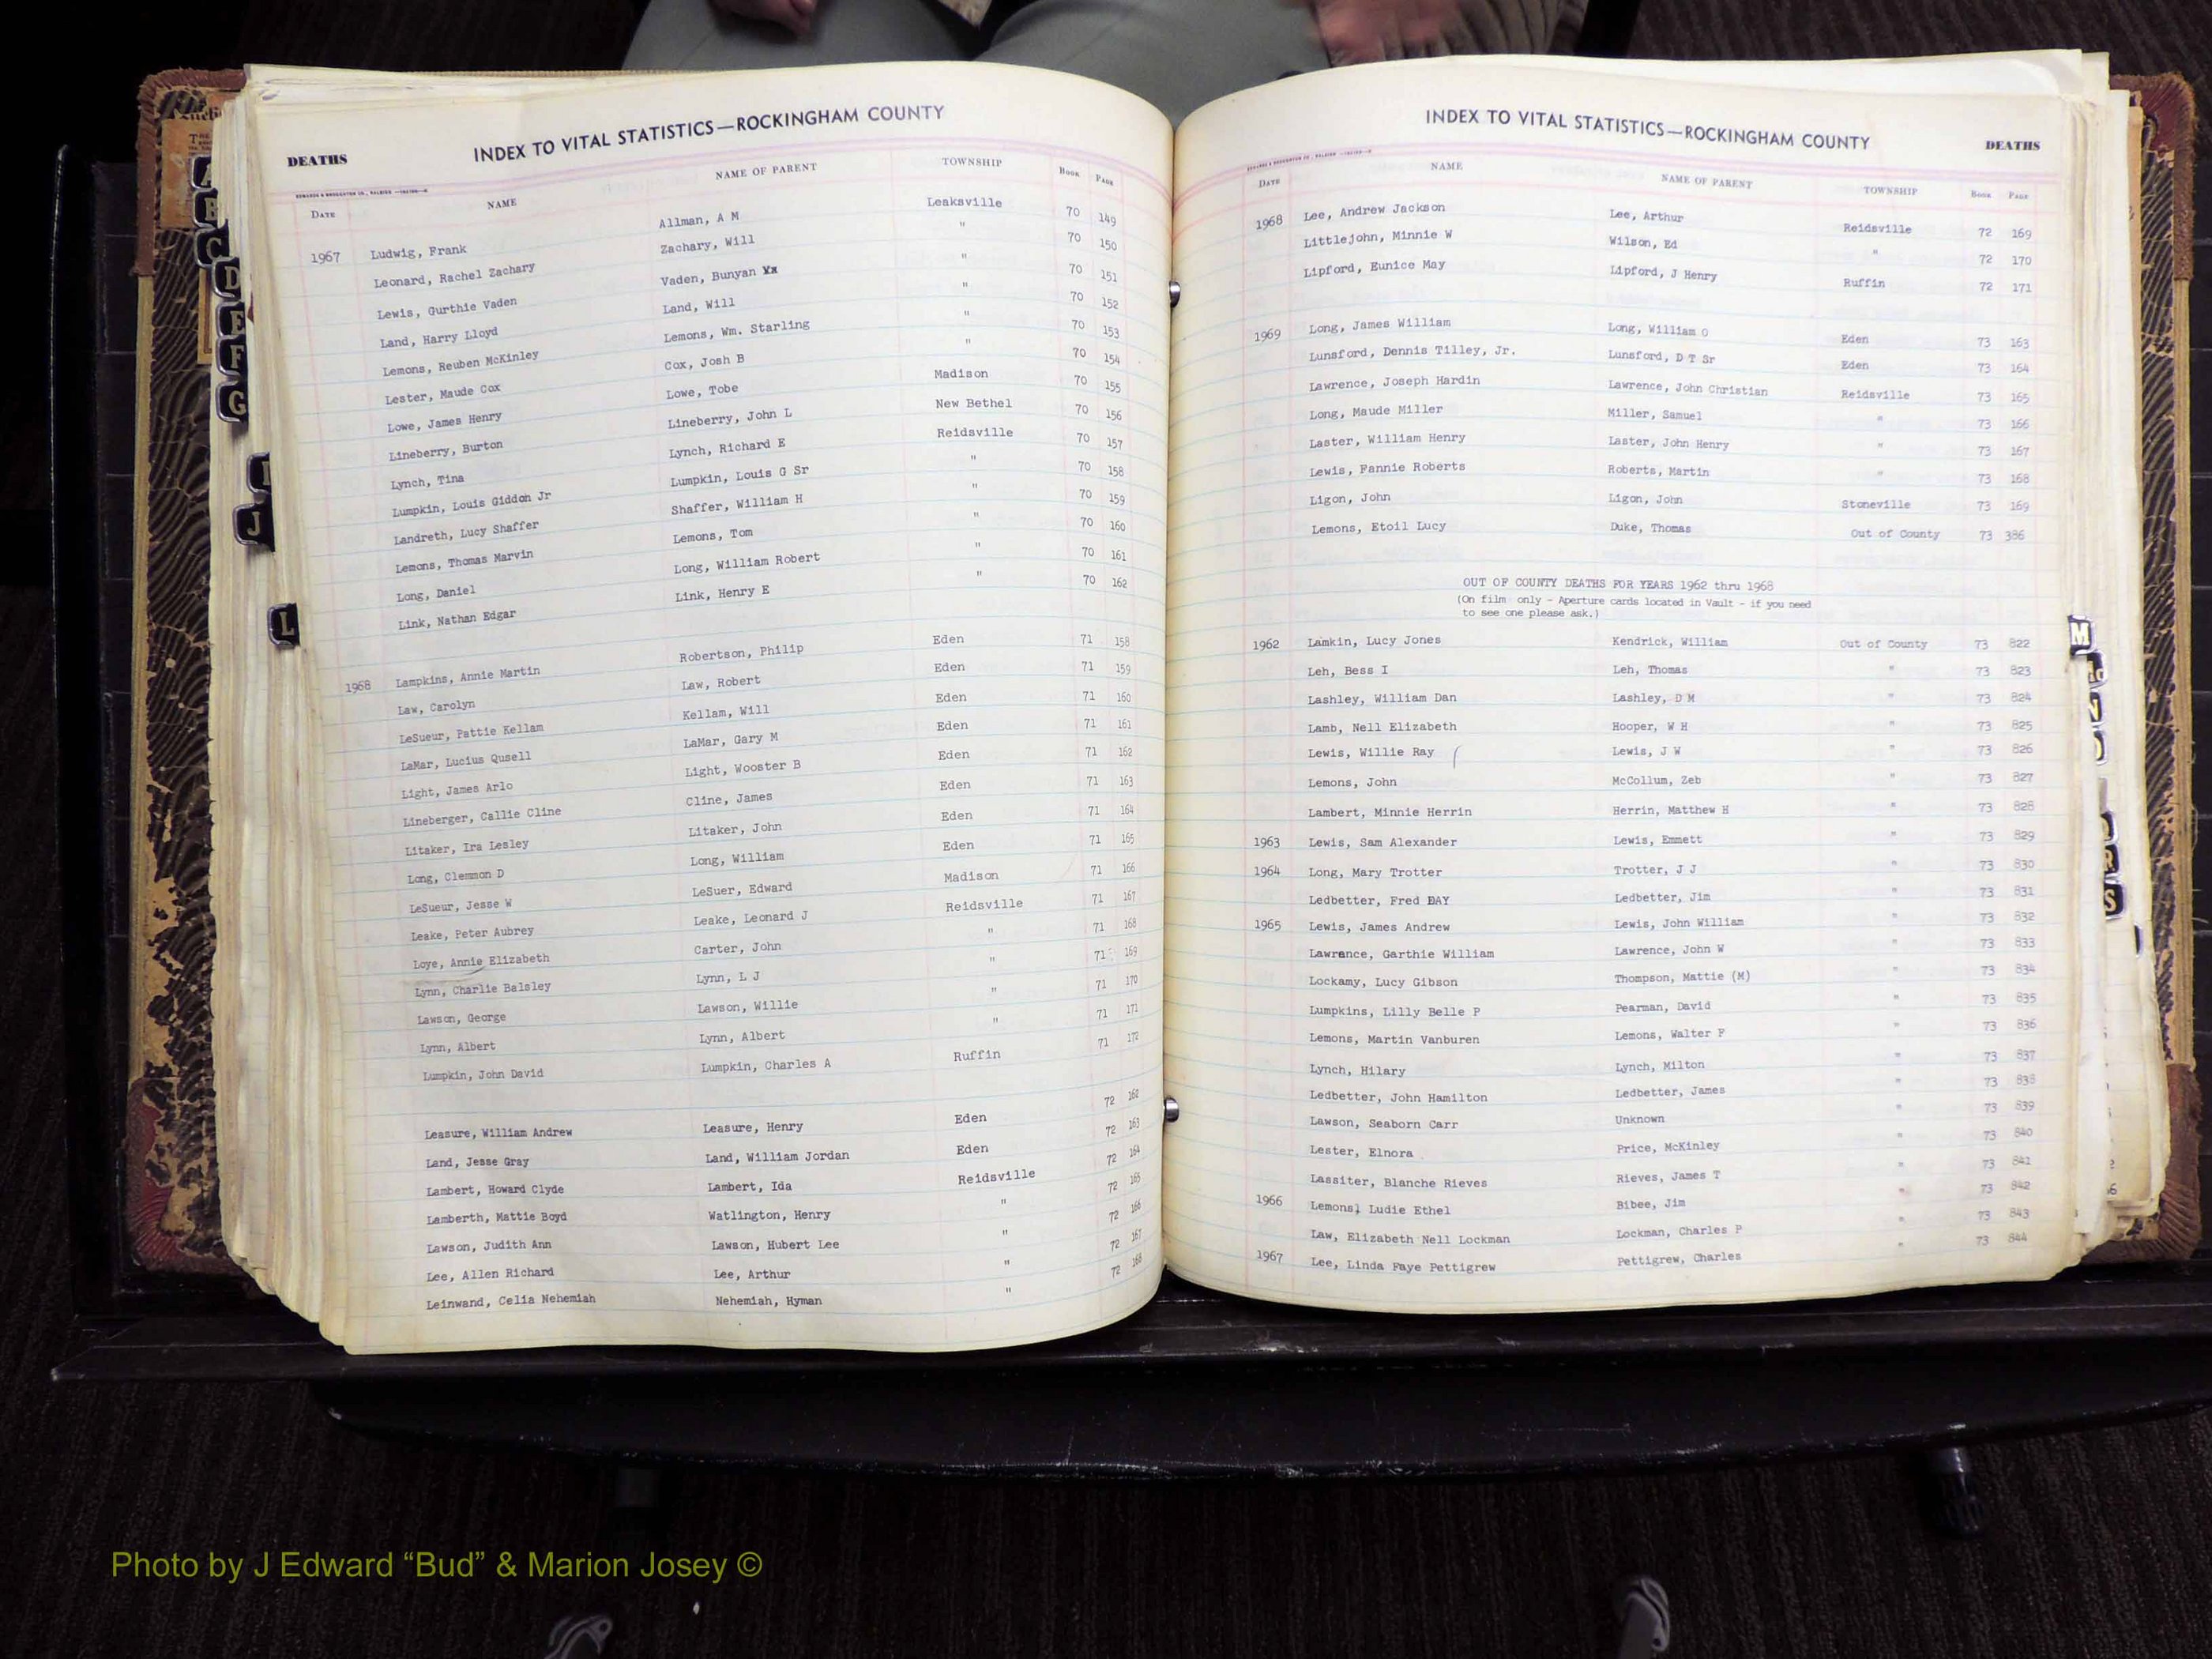 INDEX TO VITAL STATISTICS—ROCKINGHAM COUNTY
DEATHS
DATE NAME NAME OF PARENT TOWNSHIP BOOK PAGE
1967 Ludwig, Frank Allman, A M Leaksville 70 149
Leonard, Rachel Zachary Zachary, Will " 70 150
Lewis, Gurthie Vaden Vaden, Bunyan " 70 151
Land, Harry Lloyd Land, Will " 70 152
Lemons, Reuben McKinley Lemons, Wm. Starling " 70 153
Lester, Maude Cox Cox, Josh B " 70 154
Lowe, James Henry Lowe, Tobe Madison 70 155
Lineberry, Burton Lineberry, John L New Bethel 70 156
Lynch, Tina Lynch, Richard E Reidsville 70 157
Lumpkin, Louis Giddon Jr Lumpkin, Louis G Sr " 70 158
Landreth, Lucy Shaffer Shaffer, William H " 70 159
Lemons, Thomas Marvin Lemons, Tom " 70 160
Long, Daniel Long, William Robert " 70 161
Link, Nathan Edgar Link, Henry E " 70 162
1968 Lampkins, Annie Martin Robertson, Philip Eden 71 158
Law, Carolyn Law, Robert Eden 71 159
LeSueur, Pattie Kellam Kellam, Will Eden 71 160
LaMar, Lucius Qusell LaMar, Gary M Eden 71 161
Light, James Arlo Light, Wooster B Eden 71 162
Lineberger, Callie Cline Cline, James Eden 71 163
Litaker, Ira Lesley Litaker, John Eden 71 164
Long, Clemmon D Long, William Eden 71 165
LeSueur, Jesse W LeSuer, Edward Madison 71 166
Leake, Peter Aubrey Leake, Leonard J Reidsville 71 167
Loye, Annie Elizabeth Carter, John " 71 168
Lynn, Charlie Balsley Lynn, L J " 71 169
Lawson, George Lawson, Willie " 71 170
Lynn, Albert Lynn, Albert " 71 171
Lumpkin, John David Lumpkin, Charles A Ruffin 71 172
Leasure, William Andrew Leasure, Henry Eden 72 162
Land, Jesse Gray Land, William Jordan Eden 72 163
Lambert, Howard Clyde Lambert, Ida Reidsville 72 164
Lamberth, Mattie Boyd Watlington, Henry " 72 165
Lawson, Judith Ann Lawson, Hubert Lee " 72 166
Lee, Allen Richard Lee, Arthur " 72 167
Leinwand, Celia Nehemiah Nehemiah, Hyman " 72 168
INDEX TO VITAL STATISTICS—ROCKINGHAM COUNTY
DEATHS
DATE NAME NAME OF PARENT TOWNSHIP BOOK PAGE
1968 Lee, Andrew Jackson Lee, Arthur Reidsville 72 169
Littlejohn, Minnie W Wilson, Ed " 72 170
Lipford, Eunice May Lipford, J Henry Ruffin 72 171
1969 Long, James William Long, William O Eden 73 163
Lunsford, Dennis Tilley, Jr. Lunsford, D T Sr Eden 73 164
Lawrence, Joseph Hardin Lawrence, John Christian Reidsville 73 165
Long, Maude Miller Miller, Samuel " 73 166
Laster, William Henry Laster, John Henry " 73 167
Lewis, Fannie Roberts Roberts, Martin " 73 168
Ligon, John Ligon, John Stoneville 73 169
Lemons, Etoil Lucy Duke, Thomas Out of County 73 386
OUT OF COUNTY DEATHS FOR YEARS 1962 thru 1968
(On film only - Aperture cards located in Vault - if you need
to see one please ask.)
1962 Lamkin, Lucy Jones Kendrick, William Out of County 73 822
Leh, Bess I Leh, Thomas " 73 823
Lashley, William Dan Lashley, D M " 73 824
Lamb, Nell Elizabeth Hooper, W H " 73 825
Lewis, Willie Ray Lewis, J W " 73 826
Lemons, John McCollum, Zeb " 73 827
Lambert, Minnie Herrin Herrin, Matthew H " 73 828
1963 Lewis, Sam Alexander Lewis, Emmett " 73 829
1964 Long, Mary Trotter Trotter, J J " 73 830
Ledbetter, Fred DAY Ledbetter, Jim " 73 831
1965 Lewis, James Andrew Lewis, John William " 73 832
Lawrance, Garthie William Lawrence, John W " 73 833
Lockamy, Lucy Gibson Thompson, Mattie (M) " 73 834
Lumpkins, Lilly Belle P Pearman, David " 73 835
Lemons, Martin Vanburen Lemons, Walter F " 73 836
Lynch, Hilary Lynch, Milton " 73 837
Ledbetter, John Hamilton Ledbetter, James " 73 838
Lawson, Seaborn Carr Unknown " 73 839
Lester, Elnora Price, McKinley " 73 840
Lassiter, Blanche Rieves Rieves, James T " 73 841
1966 Lemons, Ludie Ethel Bibee, Jim " 73 842
Law, Elizabeth Nell Lockman Lockman, Charles P " 73 843
1967 Lee, Linda Faye Pettigrew Pettigrew, Charles " 73 844
A
B
C
D
E
F
G
J
L
M
N
R
S
Photo by J Edward “Bud” & Marion Josey ©